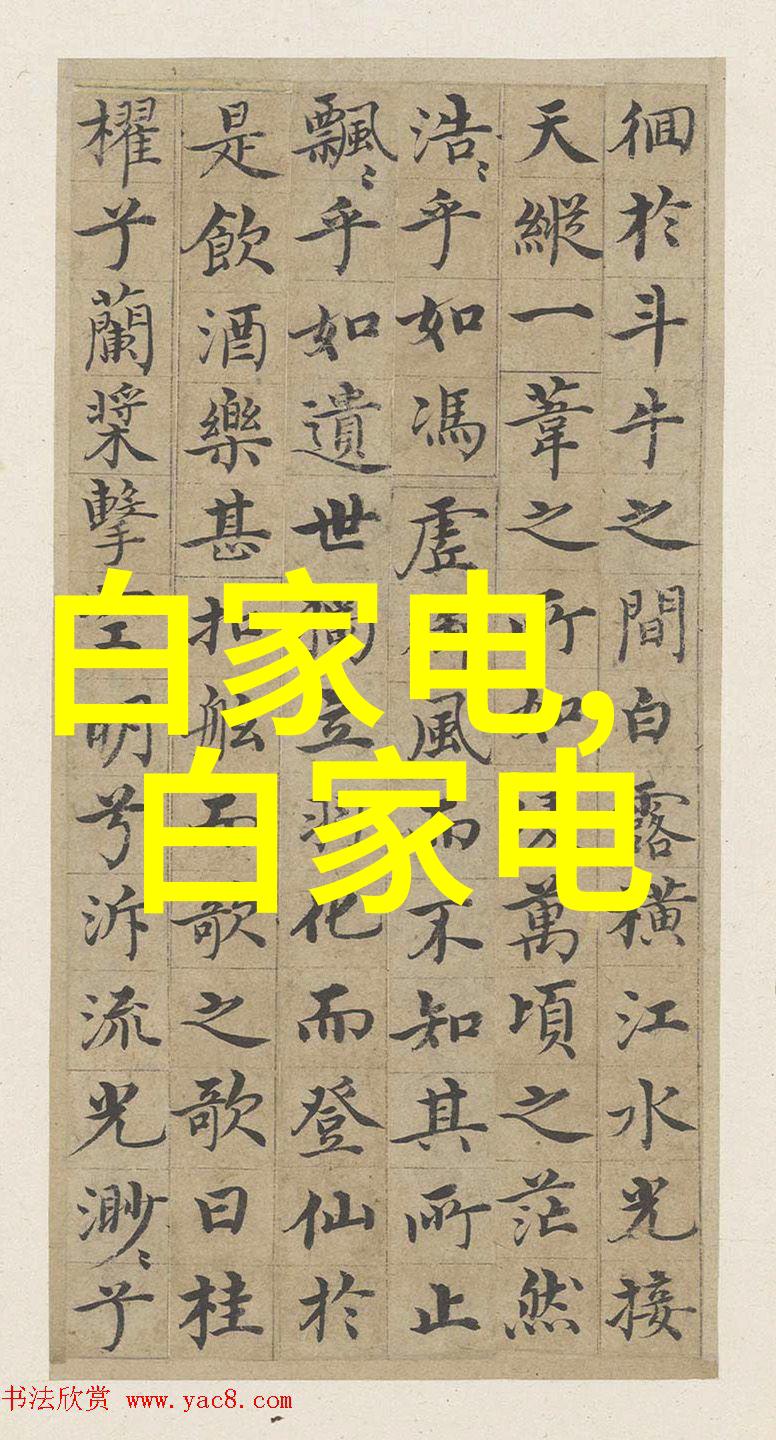 徊於斗牛之間白露橫江水光接
天縱一葦之所如萬頃之茫然
浩〻乎如馮虛風而不知其所止
飄〻乎如遺世獨立羽化而登仙於
是飲酒樂甚扣舷而歌之歌曰桂
櫂兮蘭槳擊明兮泝流光渺〻兮
白家电,
白家电
书法欣赏 www.yac8.com